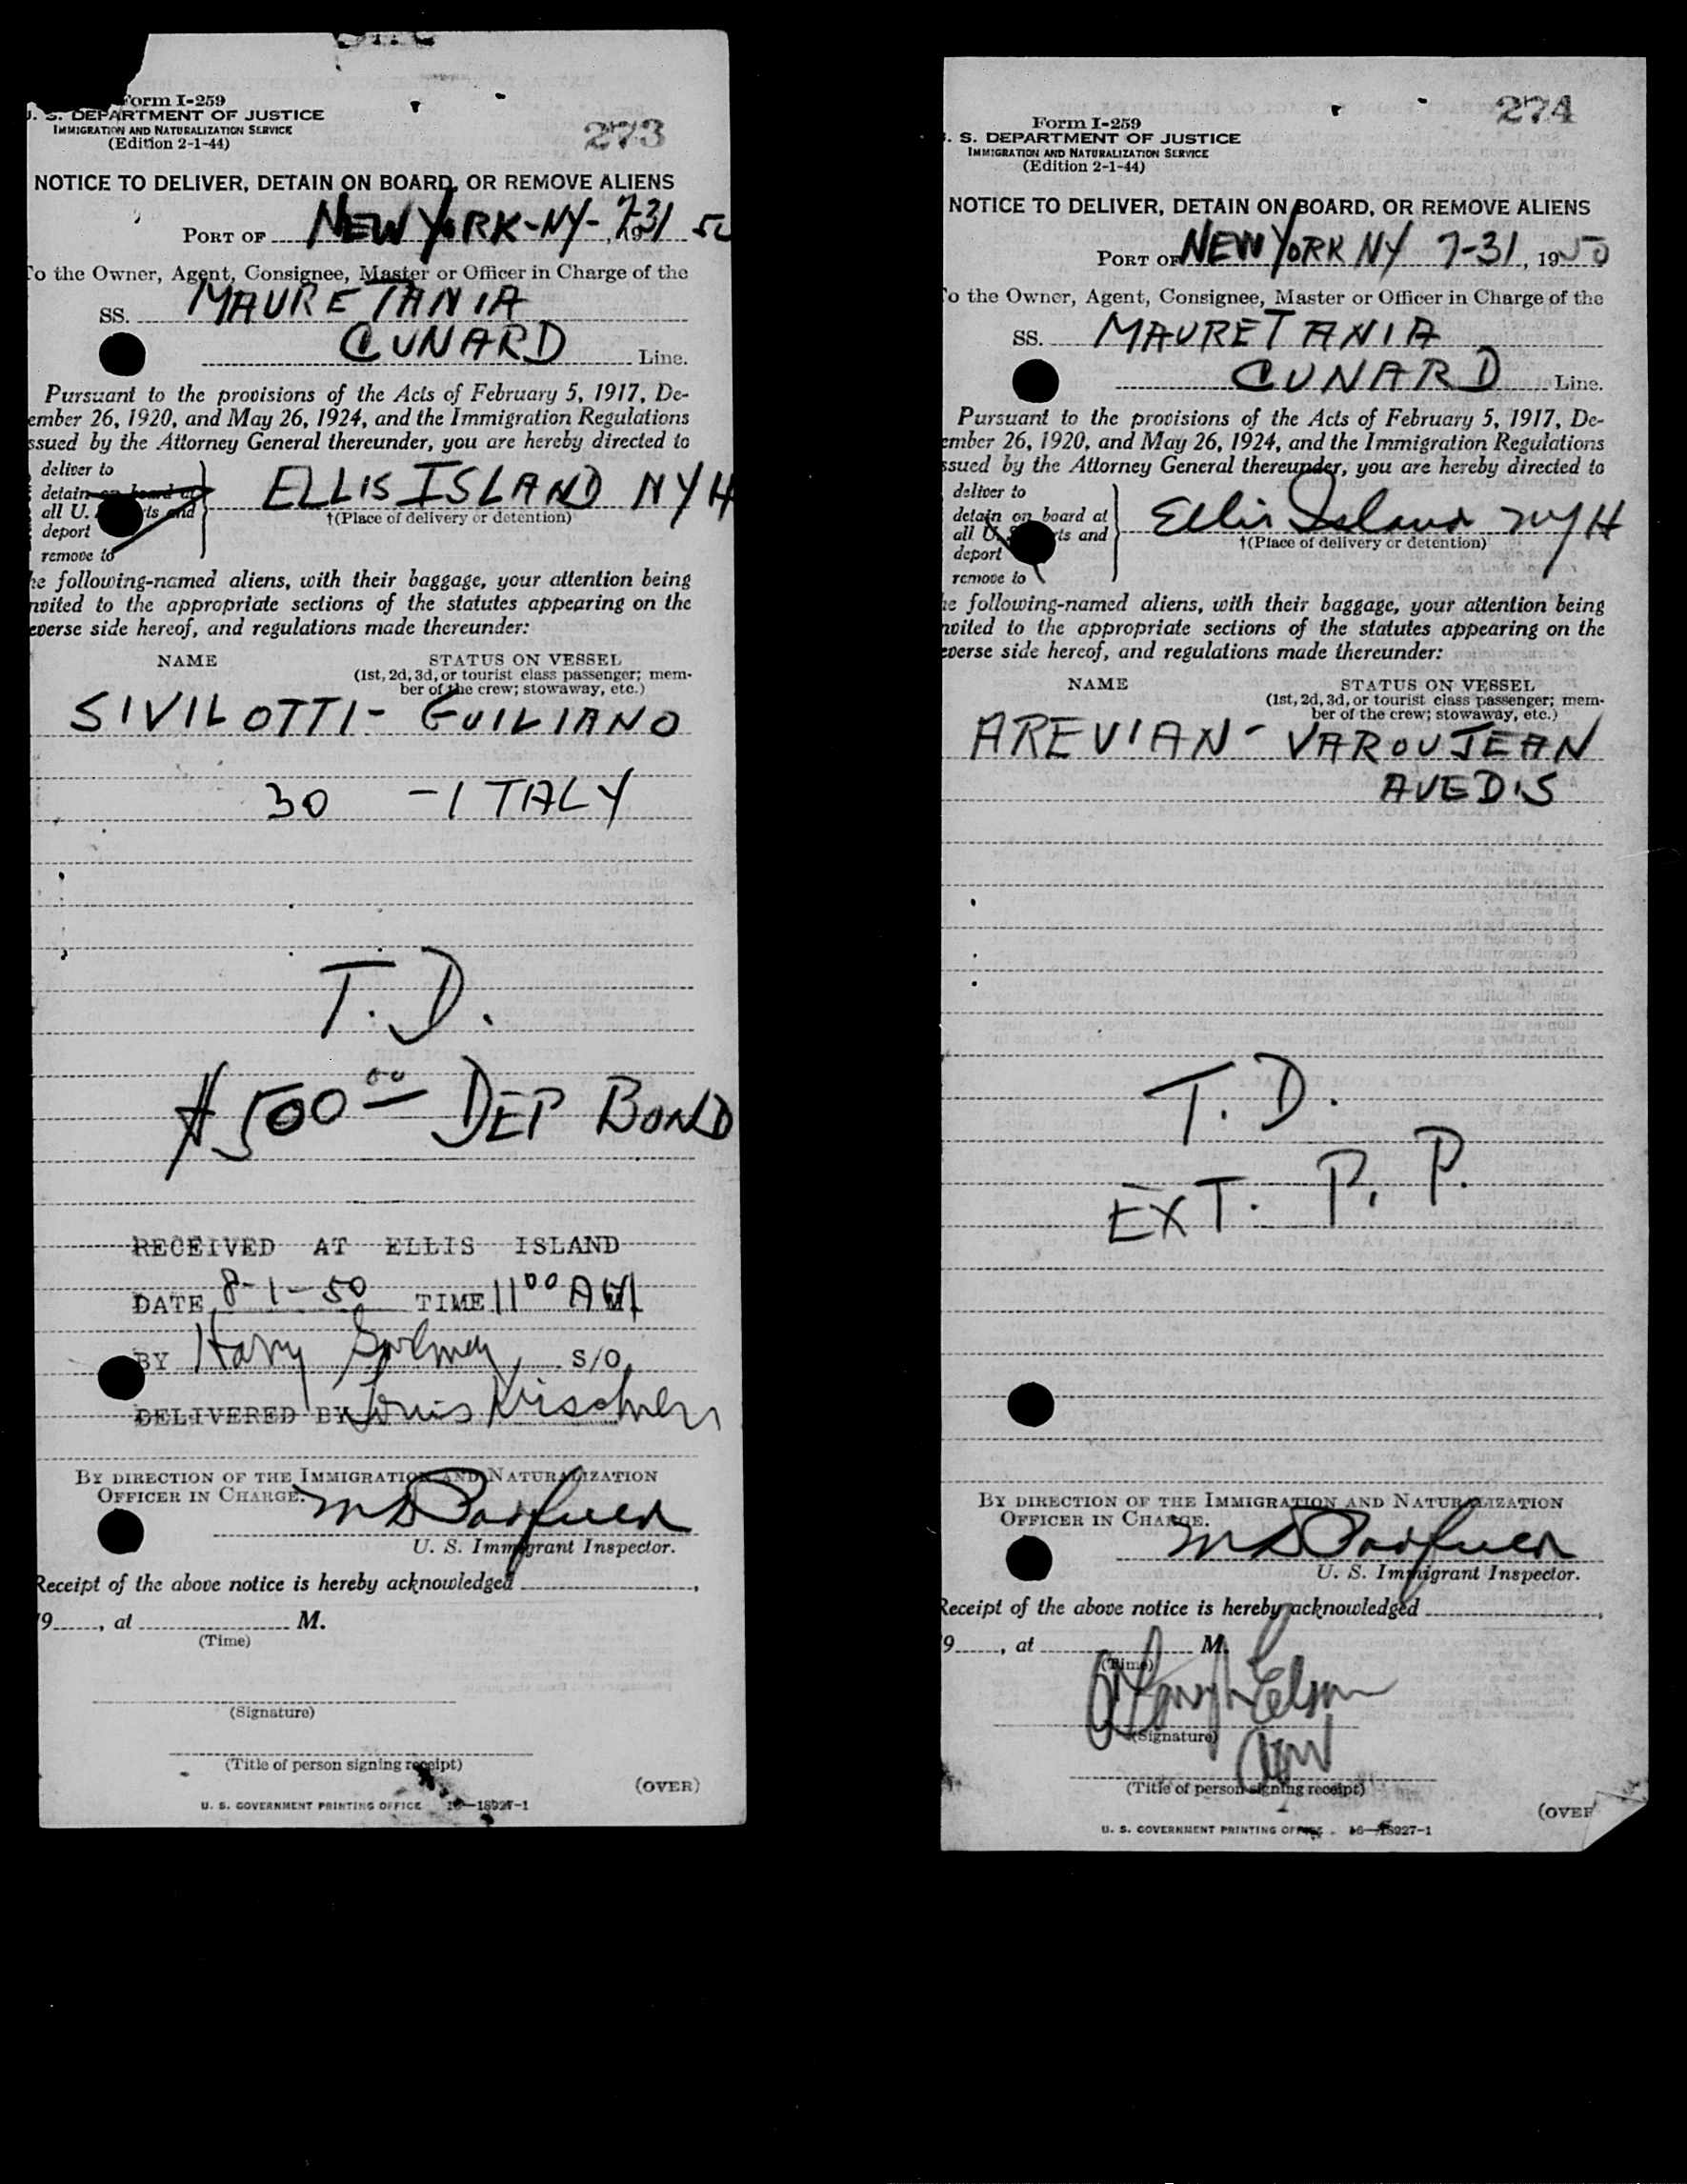 Form I-259
U. S. DEPARTMENT OF JUSTICE
IMMIGRATION AND NATURALIZATION SERVICE
(Edition 2-1-44)
273
NOTICE TO DELIVER, DETAIN ON BOARD, OR REMOVE ALIENS
PORT OF NEW YORK-NY- 7-31, 19 50
To the Owner, Agent, Consignee, Master or Officer in Charge of the
SS. MAURETANIA
CUNARD Line.
Pursuant to the provisions of the Acts of February 5, 1917, De-
ember 26, 1920, and May 26, 1924, and the Immigration Regulations
ssued by the Attorney General thereunder, you are hereby directed to
deliver to
detain on board at
all U. S. ports and
deport
remove to
ELLIS ISLAND NYH
†(Place of delivery or detention)
he following-named aliens, with their baggage, your attention being
nvited to the appropriate sections of the statutes appearing on the
everse side hereof, and regulations made thereunder:
NAME STATUS ON VESSEL
(1st, 2d, 3d, or tourist class passenger; mem-
ber of the crew; stowaway, etc.)
SIVILOTTI- GUILIANO
30 -ITALY
T.D.
$500 00 - DEP BOND
RECEIVED AT ELLIS ISLAND
DATE 8-1-50 TIME 11 00 AM
BY Harry S/O
DELIVERED BY Louis Kirschner
BY DIRECTION OF THE IMMIGRATION AND NATURALIZATION
OFFICER IN CHARGE.
U. S. Immigrant Inspector.
Receipt of the above notice is hereby acknowledged ,
19 , at M.
(Time)
(Signature)
(Title of person signing receipt)
(OVER)
U. S. GOVERNMENT PRINTING OFFICE 16—18927-1
274
Form I-259
. S. DEPARTMENT OF JUSTICE
IMMIGRATION AND NATURALIZATION SERVICE
(Edition 2-1-44)
NOTICE TO DELIVER, DETAIN ON BOARD, OR REMOVE ALIENS
PORT OF NEW YORK NY 7-31, 1950
To the Owner, Agent, Consignee, Master or Officer in Charge of the
SS. MAURETANIA
CUNARD Line.
Pursuant to the provisions of the Acts of February 5, 1917, De-
ember 26, 1920, and May 26, 1924, and the Immigration Regulations
ssued by the Attorney General thereunder, you are hereby directed to
deliver to
detain on board at
all U. S. ports and
deport
remove to
Ellis Island NYH
†(Place of delivery or detention)
he following-named aliens, with their baggage, your attention being
nvited to the appropriate sections of the statutes appearing on the
everse side hereof, and regulations made thereunder:
NAME STATUS ON VESSEL
(1st, 2d, 3d, or tourist class passenger; mem-
ber of the crew; stowaway, etc.)
AREVIAN- VAROUJEAN
AVEDIS
T.D.
EXT. P. P.
BY DIRECTION OF THE IMMIGRATION AND NATURALIZATION
OFFICER IN CHARGE.
U. S. Immigrant Inspector.
Receipt of the above notice is hereby acknowledged ,
19 , at M.
(Time)
(Signature)
(Title of person signing receipt)
(OVER
U. S. GOVERNMENT PRINTING OFFICE 16—18927-1